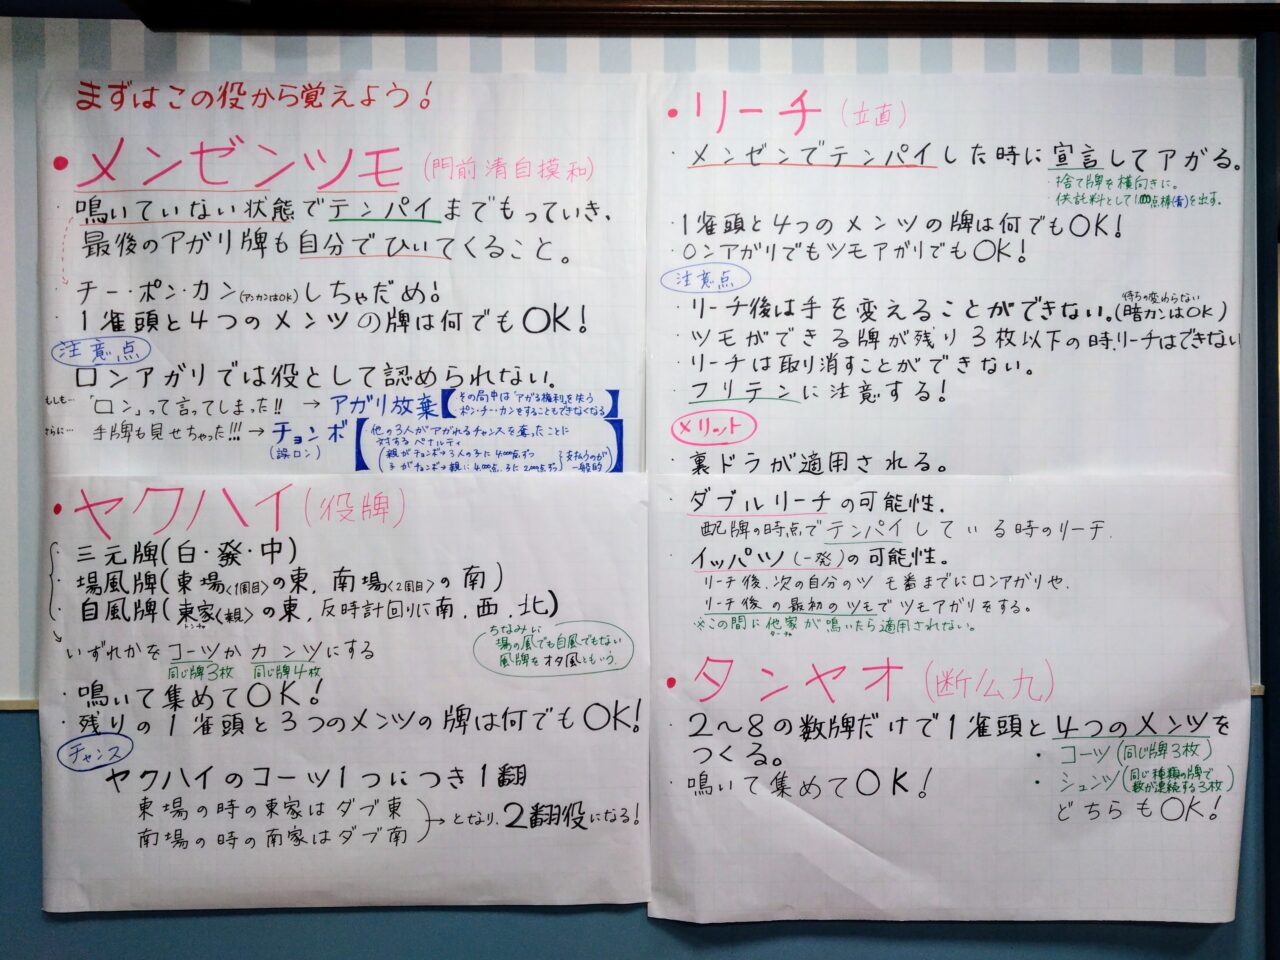 まずはこの役から覚えよう!
・メンゼンツモ(門前清自摸和)
・鳴いていない状態でテンパイまでもっていき、
最後のアガリ牌も自分でひいてくること。
・チー・ポン・カン(アンカンはOK)しちゃだめ!
・1雀頭と4つのメンツの牌は何でもOK!
注意点
ロンアガリでは役として認められない。
もしも… 「ロン」って言ってしまった!! → アガリ放棄【その局中は「アガる権利」を失う
ポン・チー・カンをすることもできなくなる】
さらに… 手牌も見せちゃった!!! → チョンボ
(誤ロン)
【・他の3人がアガれるチャンスを奪ったことに
対するペナルティ
(親がチョンボ→3人の子に4,000点ずつ
子がチョンボ→親に4,000点、子に2,000点ずつ)
を支払うのが
一般的】
・ヤクハイ(役牌)
・三元牌(白・發・中)
・場風牌(東場<1周目>の東、南場<2周目>の南)
・自風牌(東家<親>の東、反時計回りに南、西、北)
トンチャ
いずれかをコーツかカンツにする
同じ牌3枚 同じ牌4枚
ちなみに
場の風でも自風でもない
風牌をオタ風ともいう。
・鳴いて集めてOK!
・残りの1雀頭と3つのメンツの牌は何でもOK!
チャンス
ヤクハイのコーツ1つにつき1翻
東場の時の東家はダブ東
南場の時の南家はダブ南
→となり、2翻役になる!
・リーチ(立直)
・メンゼンでテンパイした時に宣言してアガる。
・捨て牌を横向きに。
・供託料として1,000点棒(青)を出す。
・1雀頭と4つのメンツの牌は何でもOK!
・ロンアガリでもツモアガリでもOK!
注意点
・リーチ後は手を変えることができない。(待ちの変わらない暗カンはOK)
・ツモができる牌が残り3枚以下の時、リーチはできない
・リーチは取り消すことができない。
・フリテンに注意する!
メリット
・裏ドラが適用される。
・ダブルリーチの可能性。
配牌の時点でテンパイしている時のリーチ。
・イッパツ(一発)の可能性。
リーチ後、次の自分のツモ番までにロンアガリや、
リーチ後の最初のツモでツモアガリをする。
※この間に他家が鳴いたら適用されない。
ターチャ
・タンヤオ(断么九)
・2〜8の数牌だけで1雀頭と4つのメンツを
つくる。
・コーツ(同じ牌3枚)
・シュンツ(同じ種類の牌で
数が連続する3枚)
どちらもOK!
・鳴いて集めてOK!